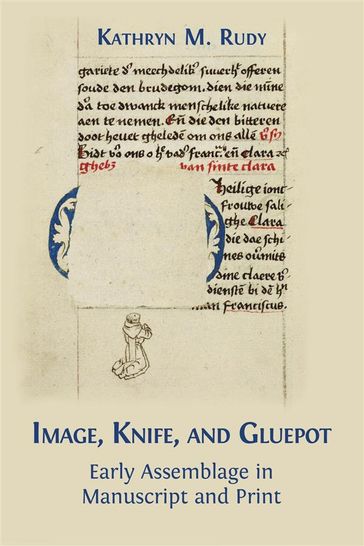 KATHRYN M. RUDY
gariete d' meechdelik' suuerh' offeren
soude den brudegom. dien die mine
d'a toe dwanck menschelike natuere
aen te nemen. En die den bitteren
doot heuet ghelede om ons alle
Bidt vo' ons o h' vad' franc'. en Clara
ghebz van sinte clara
Heilige ionc
frouwe sali
ghe Clara
die dae schi
nes oumits
dine claere
dienste bi de h'
man franciscus.
IMAGE, KNIFE, AND GLUEPOT
Early Assemblage in
Manuscript and Print